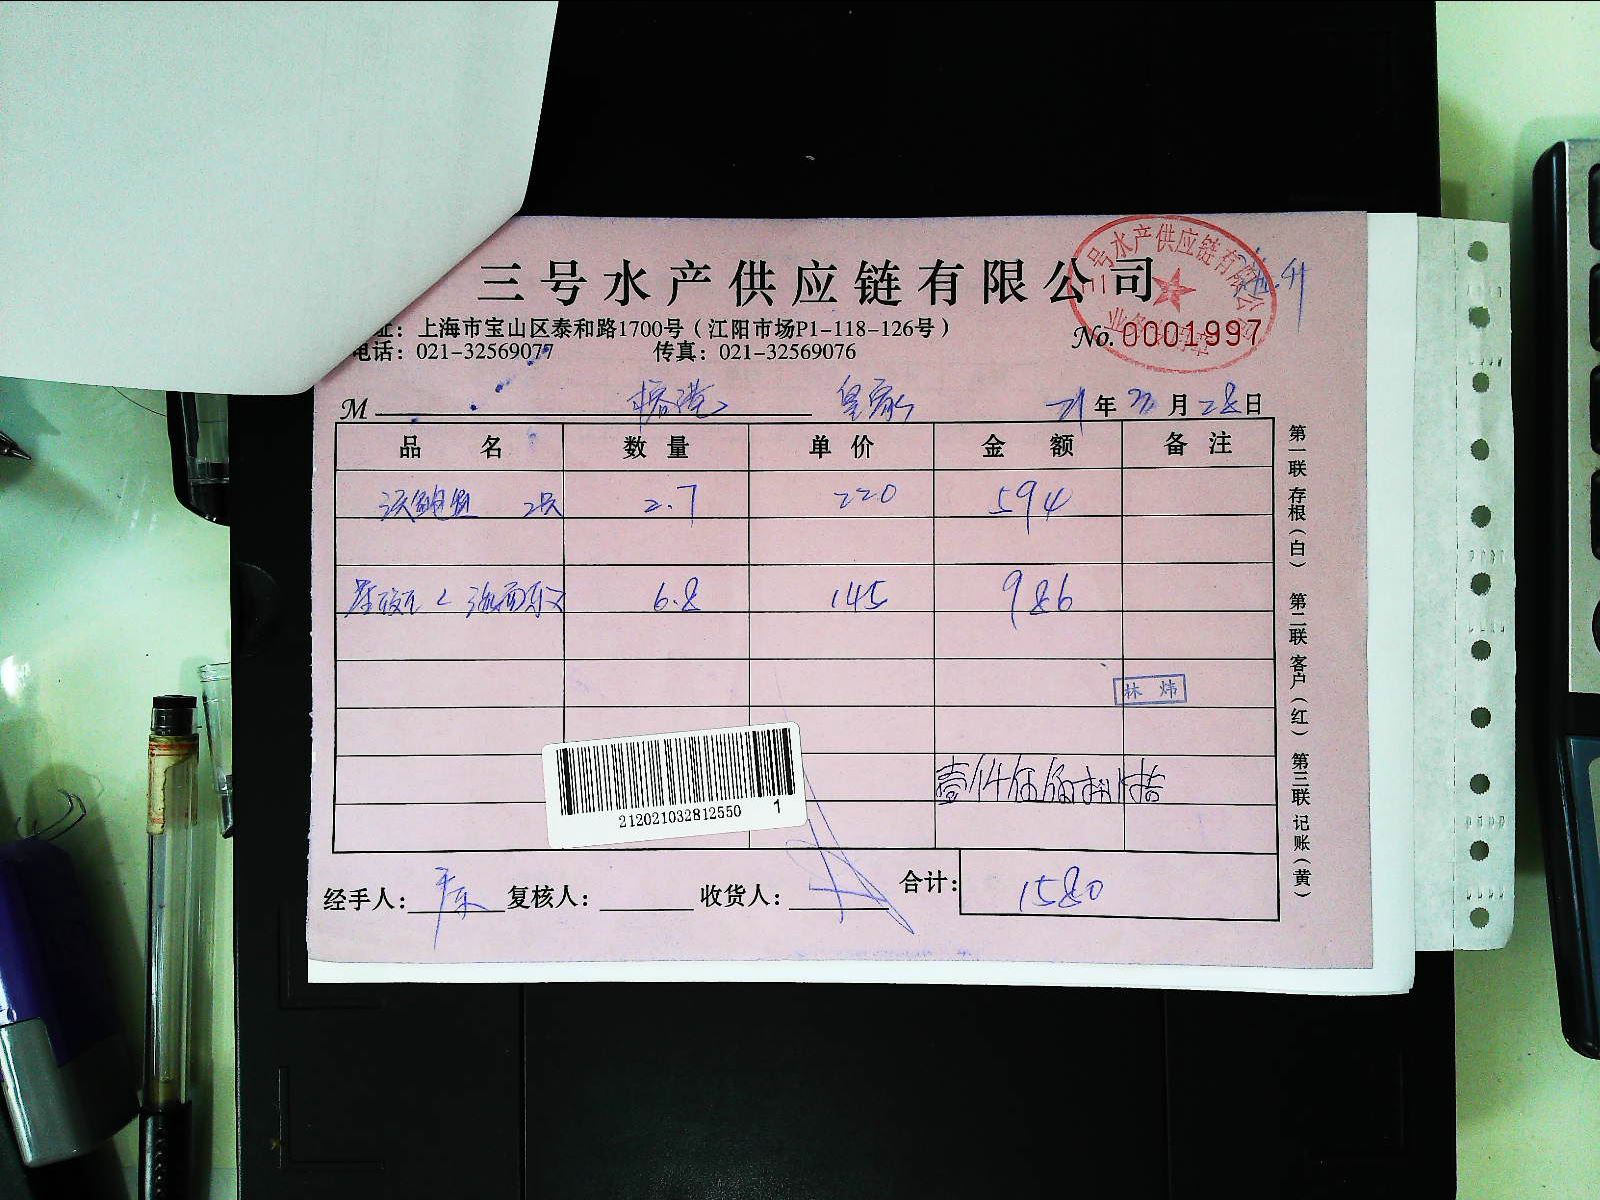 三号水产供应链有限公司
三号水产供应链有限公
业务
址：上海市宝山区泰和路1700号（江阳市场P1-118-126号）
电话：021-32569077 传真：021-32569076
No. 0001997
M 皇家 21年 月28日
品名 数量 单价 金额 备注
2只 2.7 220 594
6.8 145 986
林炜
壹仟伍佰捌拾
212021032812550 1
经手人： 复核人： 收货人： 合计： 1580
第一联 存根（白） 第二联 客户（红） 第三联 记账（黄）